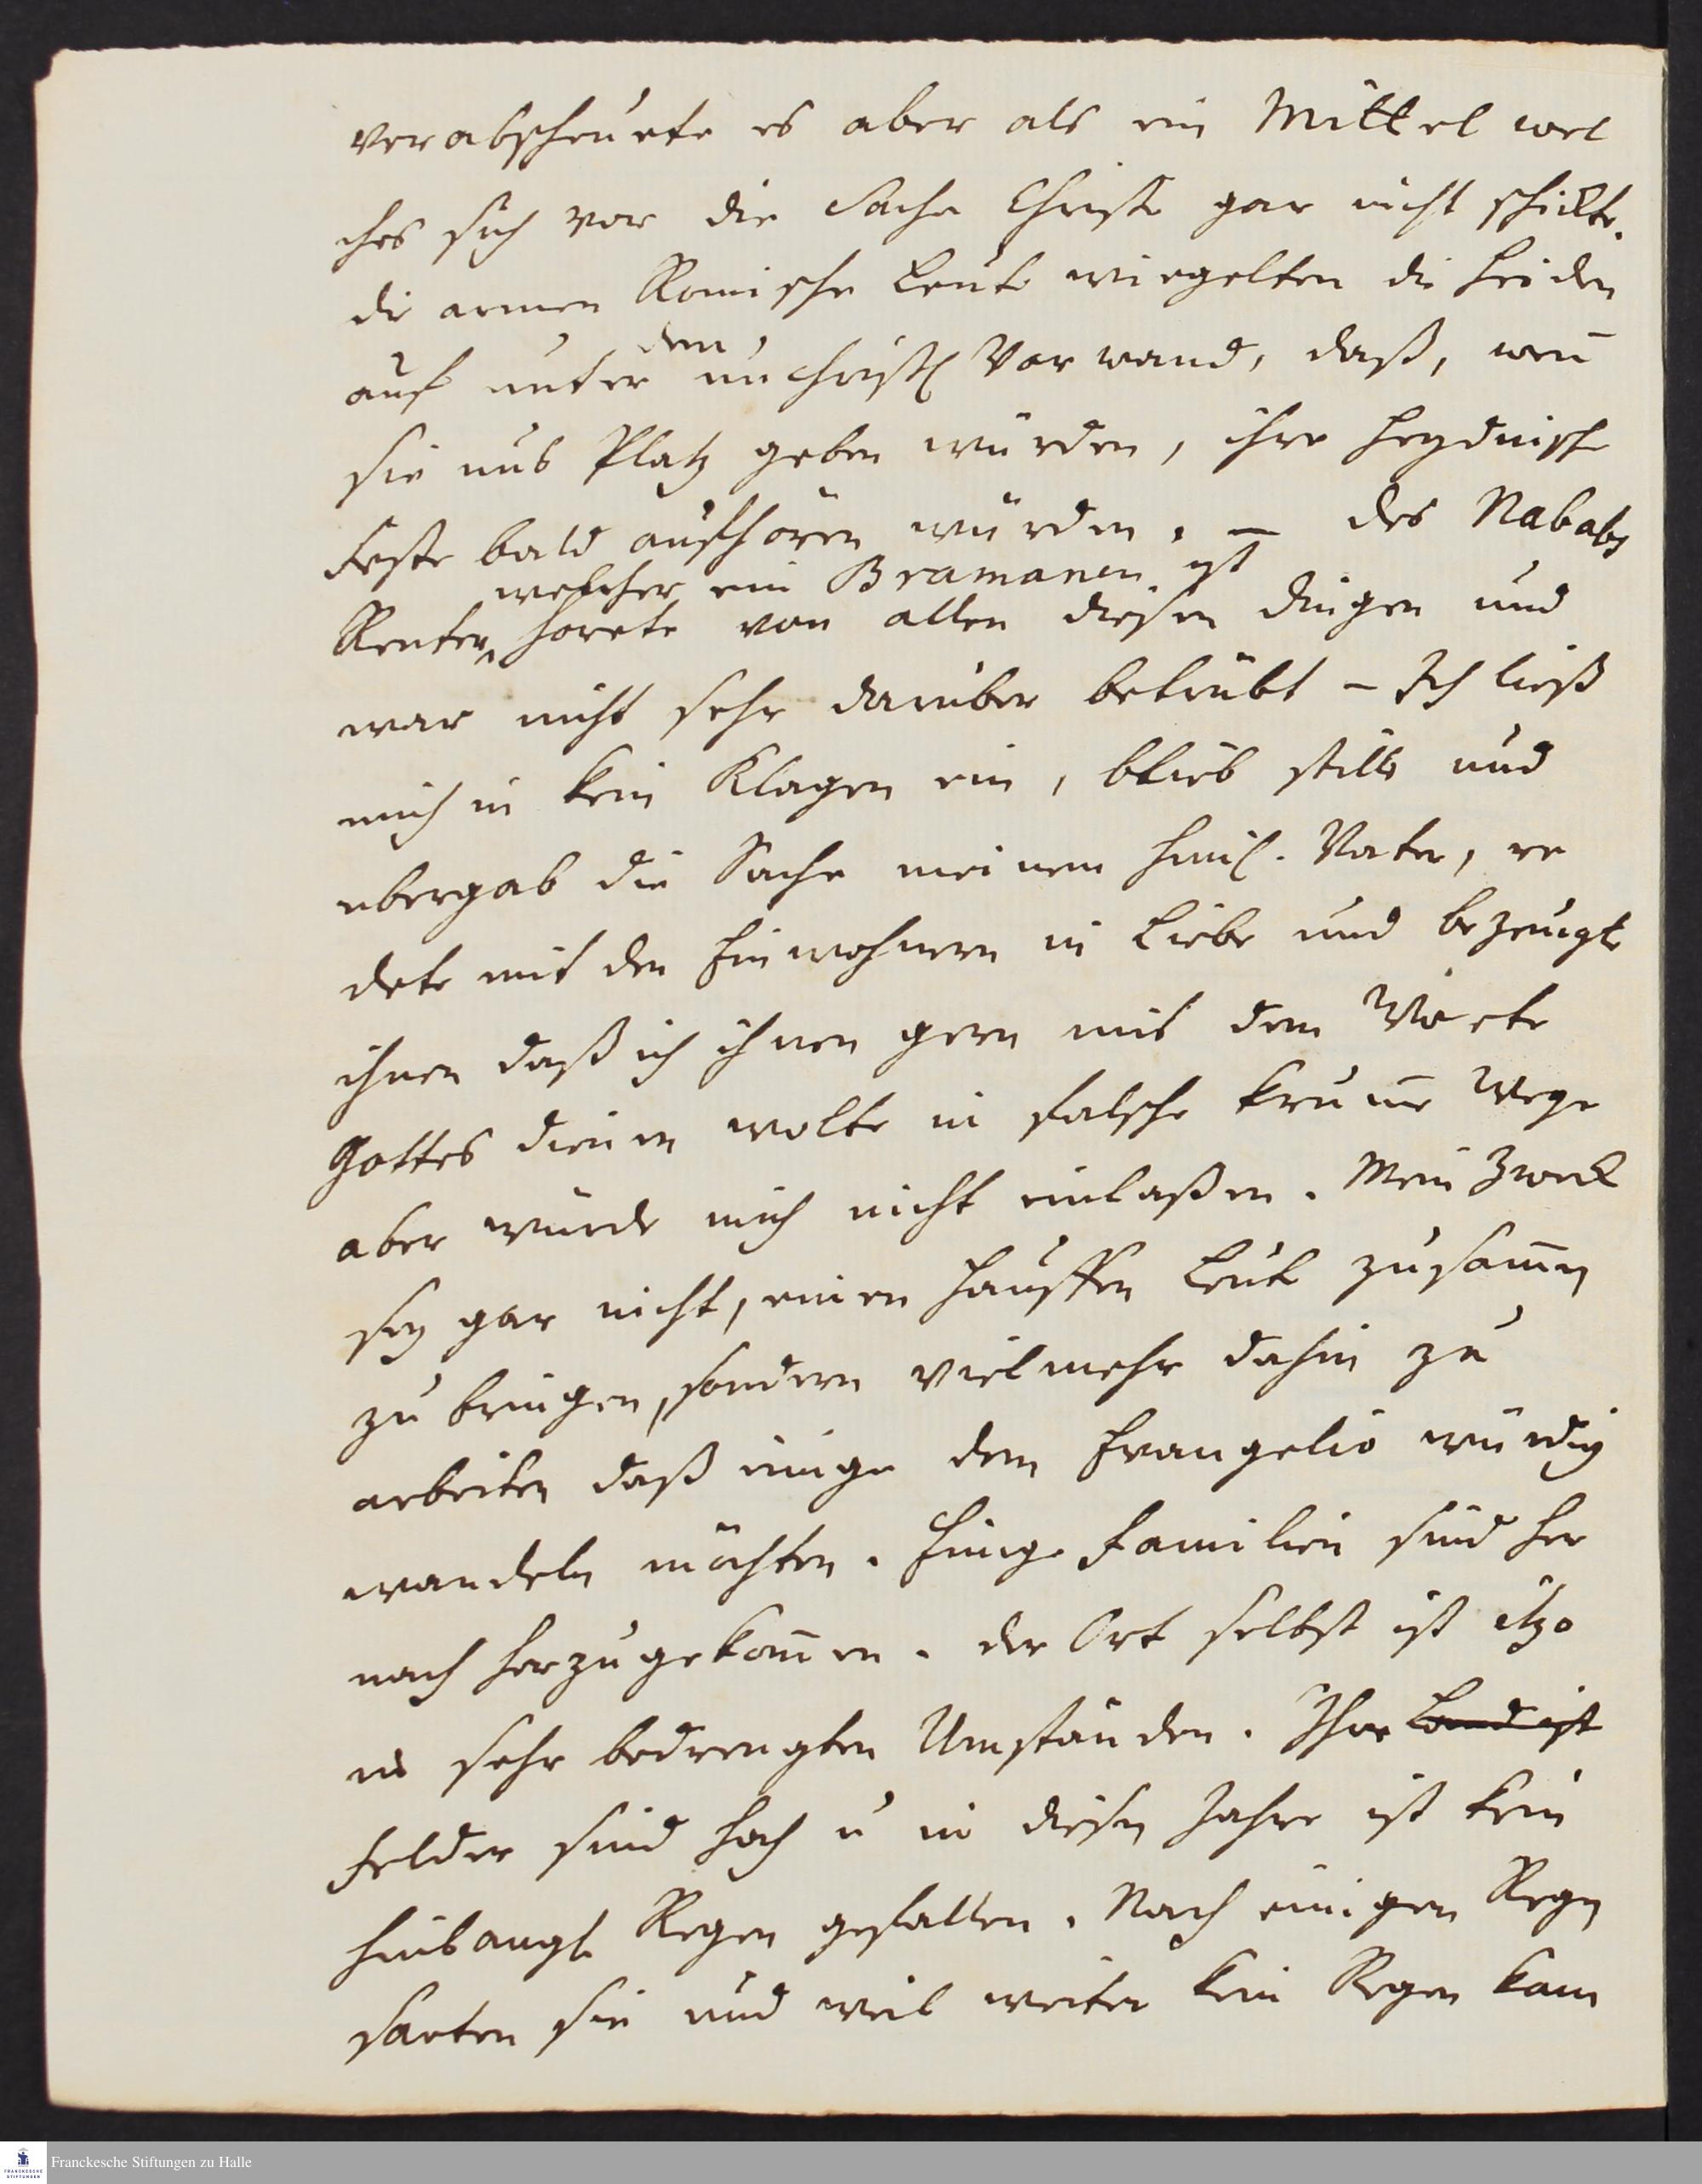 verabscheuete es aber als ein Mittel wel
ches sich vor die Sache Christi gar nicht schickte.
die armen Romische Leute wiegelten die Heiden
auf unter dem unchristl Vorwand, daß, weñ
sie uns Platz geben würden, ihre heydnische
Feste bald aufhören würden. – des Nababs
welcher ein Bramanen ist
Renter, horete von allen diesen dingen und
war nicht sehr darüber betrübt – Ich ließ
mich in kein Klagen ein, blieb stille und
ubergab die Sache meinem himl. Vater, re
dete mit den Einwohnern in Liebe und bezeugte
ihnen daß ich ihnen gern mit dem Worte
Gottes dienen wolte in falsche krum̃e Wege
aber würde mich nicht einlaßen. Mein Zweck
sey gar nicht, einen Hauffen Leute zusam̃en
zu bringen, sondern vielmehr dahin zu
arbeiten daß einige dem Evangelio würdig
wandeln möchten. Einige Familien sind her
nach herzugekom̃en. der Ort selbst ist itzo
in sehr bedrengten Umständen. Ihre Land ist
Felder sind hoch u in diesen Jahre ist kein
Regen gefallen. Nach einigen Regen
saeten sie und weil weiter kein Regen kam
Franckesche Stiftungen zu Halle